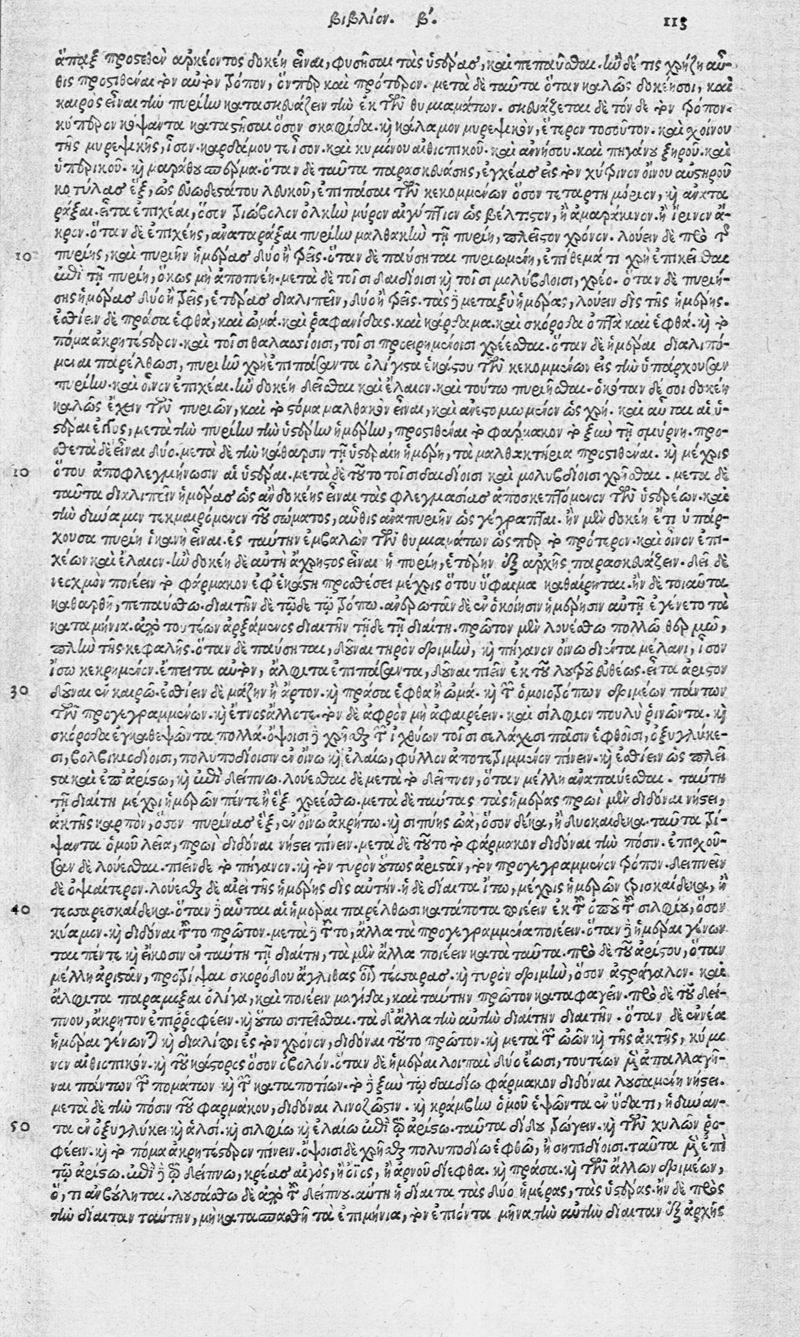 βιβλίον. β'. 113
ἅπαξ προσθεῖν ἀρκέοντος δοκέη εἶναι, φυσῆσαι τὰς ὑστέρας, καὶ πεπαῦσθαι. ἢν δέ τις χρήζη αὖ-
θις προστιθέναι τὸν αὐτὸν τρόπον, ὅνπερ καὶ πρότερον. μετὰ δὲ ταῦτα ὅταν καλῶς δοκέη σοι, καὶ
καιρὸς εἶναι τὴν πυρίην κατασκευάζειν τὴν ἐκ τῶν θυμιαμάτων. σκευάζεται δὲ τόνδε τὸν τρόπον.
κύπερον κόψαντα καταστῆσαι ὅσον σκαφίδα. καὶ κάλαμον μυρεψικὸν, ἕτερον τοσοῦτον. καὶ χοίνου
τῆς μυρεψικῆς, ἴσον. καρδάμου τε ἴσον. καὶ κυμίνου αἰθιοπικοῦ. καὶ ἀννήσου. καὶ πηγάνου ξηροῦ. καὶ
ὑπερικοῦ. καὶ μαράθου σπέρμα. ὅταν δὲ ταῦτα παρασκευάσης, ἐγχέας εἰς τὸν χύτρινον οἴνου αὐστηροῦ
κοτύλας ἓξ, ὡς εὐωδεστάτου λευκοῦ, ἐπιπάσαι τῶν κεκομμένων ὅσον τεταρτημόριον, καὶ ἀνατα
ράξαι. εἶτα ἐπιχέαι, ὅσον τριώβολον ὁλκὴν μύρον αἰγύπτιον ὡς βέλτιστον, ἢ ἀμαράκινον. ἢ ἴρινον ἄ-
κρον. ὅταν δὲ ἐπιχέης, ἀναταράξαι πυρίην μαλθακὴν τῇ πυρίῃ, πλεῖστον χρόνον. λούειν δὲ πρὸ τῆς
10 πυρίης, καὶ πυριῆν ἡμέρας δύο ἢ τρεῖς. ὅταν δὲ παύσηται πυριωμένη, ἐπίθεμά τι χρὴ ἐπικεῖσθαι
ἐπὶ τῇ πυρίῃ, ὅκως μὴ ἀποπνέη. μετὰ δὲ τοῖσι δαιδίοισι καὶ τοῖσι μολύβδοισι, χρέο. ὅταν δὲ πυριή-
σης ἡμέρας δύο ἢ τρεῖς, ἑτέρας διαλιπεῖν, δύο ἢ τρεῖς. τὰς δὲ μεταξὺ ἡμέρας, λούειν δὶς τῆς ἡμέρης.
ἐσθίειν δὲ πράσα ἑφθὰ, καὶ ὠμά. καὶ ῥαφανίδας. καὶ κάρδαμα. καὶ σκόροδα ὀπτὰ καὶ ἑφθά. καὶ τὸ
πόμα ἀκρητέστερον. καὶ τοῖσι θαλασσίοισι, τοῖσι προειρημένοισι χρέεσθαι. ὅταν δὲ ἡμέραι διαλιπό-
μεναι παρέλθωσι, πυριῆν χρὴ ἐπιπάσαντα ὀλίγιστα ἑκάστου τῶν κεκομμένων εἰς τὴν ὑπάρχουσαν
πυρίην. καὶ οἶνον ἐπιχέαι. ἢν δοκέη δεῖσθαι καὶ ἔλαιον. καὶ τούτῳ πυριῆσθαι. ὁκόταν δέ σοι δοκέη
καλῶς ἔχειν τῶν πυριῶν, καὶ τὸ στόμα μαλθακὸν εἶναι, καὶ ἀνεστομωμένον ὡς χρή. καὶ αὗται αἱ ὑ-
στέραι ἐγγὺς, μετὰ τὴν πυρίην τὴν ὑστέρην ἡμέρην, προστιθέναι τὸ φάρμακον τὸ ξὺν τῇ σμύρνῃ. προ-
σθετὰ δὲ εἶναι δύο. μετὰ δὲ τὴν κάθαρσιν τῇ ὑστεραίῃ ἡμέρῃ, τὰ μαλθακτήρια προστιθέναι. καὶ μέχρις
10 ὅτου ἀποφλεγμήνωσιν αἱ ὑστέραι. μετὰ δὲ τοῦτο τοῖσι δαιδίοισι καὶ μολυβδίοισι χρῆσθαι. μετὰ δὲ
ταῦτα διαλιπεῖν ἡμέρας ὡς ἂν δοκέης εἶναι τὰς φλεγμασίας ἀποσκεπτόμενον τῶν ὑστερέων. καὶ
τὴν δύναμιν τεκμαιρόμενον τοῦ σώματος, αὖθις ἀναπυριῆν ὡς γέγραπται. ἢν μὲν δοκέη ἔτι ὑπάρ-
χουσα πυρίη ἱκανὴ εἶναι. ἐς ταύτην ἐμβαλὼν τῶν θυμιαμάτων ὥσπερ τὸ πρότερον. καὶ οἶνον ἐπι-
χέων καὶ ἔλαιον. ἢν δοκέη δὲ αὐτὴ ἄχρηστος εἶναι ἡ πυρίη, ἑτέρην ἐξ ἀρχῆς παρασκευάζειν. δεῖ δὲ
νεοχμὸν ποιέειν τὸ φάρμακον ἐφ' ἑκάστῃ προσθέσει μέχρις ὅτου ὕφαιμα καθαίρηται. ἢν δὲ τοιαῦτα
καθαρθῇ, πεπαύσθω. διαιτῆν δὲ τῷδε τῷ τρόπῳ. ἀνερωτᾶν δὲ ἐν ὁκοίῃσιν ἡμέρῃσιν αὐτῇ ἐγένετο τὰ
καταμήνια. ἀπὸ τουτέων ἀρξάμενος διαιτῆν τῇδε τῇ διαίτῃ. πρῶτον μὲν λουέσθω πολλῷ θερμῷ,
πλὴν τῆς κεφαλῆς. ὅταν δὲ παύσηται, δοῦναι τηρὸν δριμὺν, καὶ πήγανον οἴνῳ διέντα μέλανι, ἶσον
ἴσῳ κεκρημένον. ἔπειτα αὐτὸν, ἄλφιτα ἐπιπάσαντα, δοῦναι πιεῖν ἐκ τοῦ λουτροῦ εὐθέως. εἶτα ἄριστον
30 δοῦναι ἐν καιρῷ. ἐσθίειν δὲ μάζην ἢ ἄρτον. καὶ πράσα ἑφθὰ ἢ ὠμά. καὶ τῶν ὁμοιοτρόπων δριμέων πάντων
τῶν προγεγραμμένων. καὶ ἔτνος ἄλλοτε. τὸν δὲ ἀφρὸν μὴ ἀφαιρέειν. καὶ σίλφιον πουλὺ ῥινῶντα. καὶ
σκόροδα ἐγκαθεψῶντα πολλά. ὄψοισι δὲ χρῆσθαι τῶν ἰχθύων τοῖσι σελάχεσι πᾶσιν ἑφθοῖσι, ὀξυγλύκε-
σι, βολβικιδίοισι, πολυποδίοισιν ἐν οἴνῳ καὶ ἐλαίῳ, φύλλον ἀποτετριμμένον πίνειν. καὶ ἐσθίειν ὡς πλεῖ
στα καὶ ἐπ' ἀρίστῳ, καὶ ἐπὶ δείπνῳ. λούεσθαι δὲ μετὰ τὸ δεῖπνον, ὅταν μέλλη ἀναπαύεσθαι. ταύτῃ
τῇ διαίτῃ μέχρι ἡμερῶν πέντε ἢ ἓξ χρεέσθω. μετὰ δὲ ταύτας τὰς ἡμέρας πρωὶ μὲν διδόναι νήστει,
ἀκτῆς καρπὸν, ὅσον πυρῆνας ἓξ, ἐν οἴνῳ ἀκρήτῳ. καὶ σηπίης ὠὰ, ὅσον δέκα, ἢ δυοκαίδεκα. ταῦτα τρί-
ψαντα ὁμοῦ λεῖα, πρωὶ διδόναι νήστει πίνειν. μετὰ δὲ τοῦτο τὸ φάρμακον διδόναι τὴν πόσιν. ἐπισχοῦ-
σαν δὲ λούεσθαι. πιεῖν δὲ τὸ πήγανον. καὶ τὸν τυρὸν οὕτως ἀριστᾶν, τὸν προγεγραμμένον τρόπον. δειπνεῖν
δὲ ὀψαίτερον. λούεσθαι δὲ αἰεὶ τῆς ἡμέρης δὶς αὐτήν. ἡ δὲ δίαιτα ἔστω, μέχρις ἡμερῶν τρισκαίδεκα, ἢ
40 τεσσαρεσκαίδεκα. ὅταν δὲ αὗται αἱ ἡμέραι παρέλθωσι κατάποτα ποιέειν ἐκ τοῦ ὀποῦ τοῦ σιλφίου, ὅσον
κύαμον. καὶ διδόναι τοῦτο πρῶτον. μετὰ δὲ τοῦτο, ἄλλα τὰ προγεγραμμένα ποιέειν. ὅταν δὲ ἡμέραι γένων
ται πέντε καὶ εἴκοσιν ἐν ταύτῃ τῇ διαίτῃ, τὰ μὲν ἄλλα ποιέειν κατὰ ταῦτα. πρὸ δὲ τοῦ ἀρίστου, ὅταν
μέλλη ἀριστᾶν, προτρίψαι σκορόδου ἀγλιθας τεσσαρας. καὶ τυρὸν δριμὺν, ὅσον ἀστράγαλον. καὶ
ἄλφιτα παραμῖξαι ὀλίγα, καὶ ποιέειν μαγίδα, καὶ ταύτην πρῶτον καταφαγεῖν. πρὸ δὲ τοῦ δεί-
πνου, ἄκρητον ἐπιῤῥοφέειν. καὶ οὕτω σιτεῖσθαι. τὰ δ' ἄλλα τὴν αὐτὴν δίαιταν διαιτῆν. ὅταν δὲ ἐννέα
ἡμέραι γένωνται καὶ διαλίποις τὸν χρόνον, διδόναι τοῦτο πρῶτον. καὶ μετὰ τῶν ὠῶν καὶ τῆς ἀκτῆς, κύμι
νον αἰθιοπικόν. καὶ τοῦ κάστορος ὅσον ὀβολόν. ὅταν δὲ ἡμέραι λοιπαὶ δύο ἔωσι, τουτέων μὲν ἀπαλλαγῆ-
ναι πάντων τῶν πομάτων καὶ τῶν καταποτίων. τὸ δὲ ξὺν τῷ δαιδίῳ φάρμακον διδόναι λουσαμένῃ νήστει.
μετὰ δὲ τὴν πόσιν τοῦ φαρμάκου, διδόναι λινοζῶστιν. καὶ κράμβην ὁμοῦ ἑψῶντα ἐν ὕδατι, ἡδύναν-
50 τα ἐν ὀξυγλύκει καὶ ἁλσί. καὶ σιλφίῳ καὶ ἐλαίῳ ἐπὶ τῷ ἀρίστῳ. ταῦτα δίδου τρώγειν. καὶ τῶν χυλῶν ῥο-
φέειν. καὶ τὸ πόμα ἀκρητέστερον πίνειν. ὄψοισι δὲ χρῆσθαι πολυποδίῳ ἑφθῷ, ἢ σηπιδίοισι. ταῦτα μὲν ἐπὶ
τῷ ἀρίστῳ. ἐπὶ δὲ τῷ δείπνῳ, κρέας αἰγὸς, ἢ ὄϊος, ἢ ἀρνοῦ δίεφθα. καὶ πράσα. καὶ τῶν ἄλλων δριμέων,
ὅ, τι ἂν βούληται. λουσάσθω δὲ ἀπὸ τοῦ δείπνου. αὕτη ἡ δίαιτα τὰς δύο ἡμέρας, τὰς ὑστέρας. ἢν δὲ πρὸς
τὴν δίαιταν ταύτην, μὴ κατασπασθῇ τὰ ἐπιμήνια, τὸν ἐπιόντα μῆνα τὴν αὐτὴν δίαιταν ἐξ ἀρχῆς